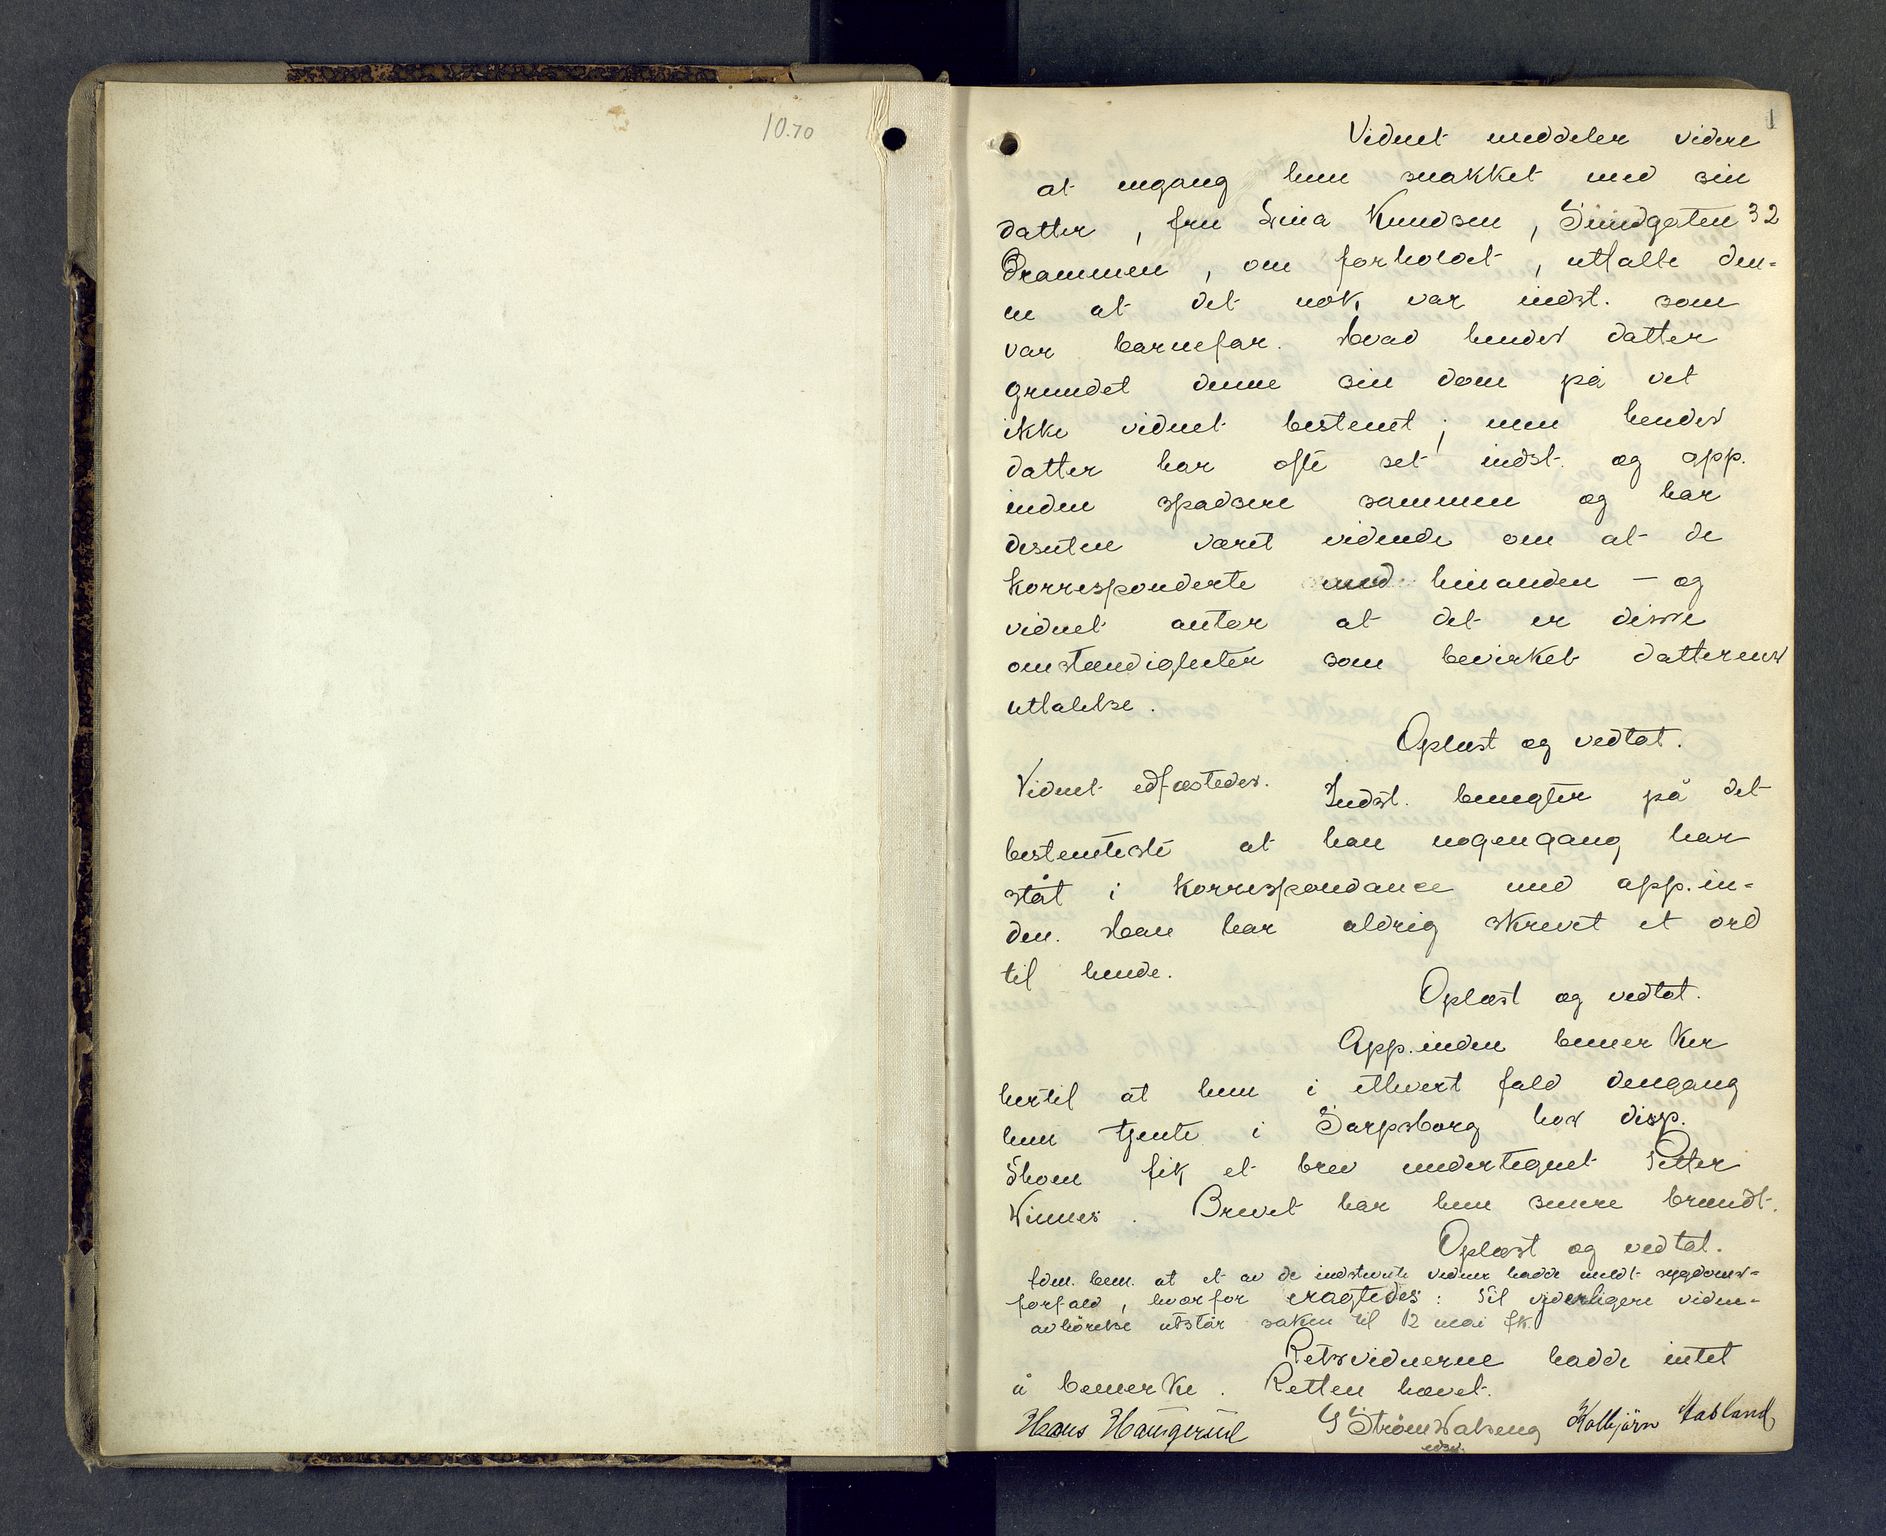 10.70
1
Vidnet meddeler videre
at engang hun snakket med sin
datter, fru Lina Knudsen, Smidgaten 32
Drammen, om forholdet, uttalte den-
ne at det nok var indst. som
var barnefar. Hvad hendes datter
grundet denne sin dom på vet
ikke vidnet bestemt; men hendes
datter har ofte set indst. og app.
inden spadsere sammen og har
desuten været vidende om at de
korresponderte med hinanden – og
vidnet antar at det er disse
omstændigheter som bevirket datterens
uttalelse.
Oplæst og vedtat.
Vidnet edfæstedes. Indst. benegter på det
bestemteste at han nogengang har
ståt i korrespondance med app.in-
den. Han har aldrig skrevet et ord
til hende.
Oplæst og vedtat.
App.inden bemerker
hertil at hun i ethvert fald dengang
hun tjente i Sarpsborg hos disp.
fik et brev undertegnet Petter
Brevet har hun senere brændt.
Oplæst og vedtat.
Fdm. bem. at et av de indstevnte vidner hadde meldt sygdoms-
forfald, hvorfor eragtedes: Til yderligere vidne-
avhørelse utstår saken til 12 mai fk.
Retsvidnerne hadde intet
å bemerke. Retten hævet.
Hans Haugerud G Strøm Kolbjørn
edsv.